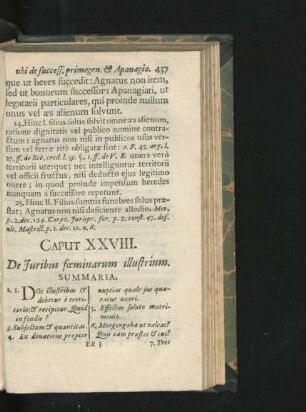 ubi de success. primogen. & Apanagio. 437
que ut heres succedit: Agnatus non item,
sed ut bonorum successor: Apanagiati, ut
legatarii particulares, qui proinde nullum
onus vel æs alienum solvunt.
24. Hinc I. filius solus solvit omne æs alienum,
ratione dignitatis vel publico nomine contra-
ctum: agnatus non nisi in publicos usus ver-
sum vel terræ ritè obligatæ sint: v. P. 45. arg. l.
27. ff. de Reb. cred. l. 19. §. 1. ff. de V. S. onera verò
territorii uterque: nec intelliguntur territorii
vel officii fructus, nisi deducto ejus legitimo
onere; in quod proinde impensum heredes
nunquam à successore repetunt.
25. Hinc II. Filius sumtus funebres solus præ-
stat: Agnatus non nisi deficiente allodio. Mev.
p. 2. dec. 124. Carpz. Jurispr. for. p. 2. const. 47. defi-
nit. Mastrill. p. 1. dec. 10. n. 6.
CAPUT XXVIII.
De Juribus fœminarum illustrium.
SUMMARIA.
1. 2. DOs illustribus &
debetur è terri-
torio, & recipitur. Quid
in feudis?
3. Subjectum & quantitas.
4. Ex donatione propter
nuptias quale jus quæ-
ratur uxori.
5. Effectus soluto matri-
monio.
6. Morgengaba ut valeat?
Quis eam præstet & cui?
Ee 3
7. Tres